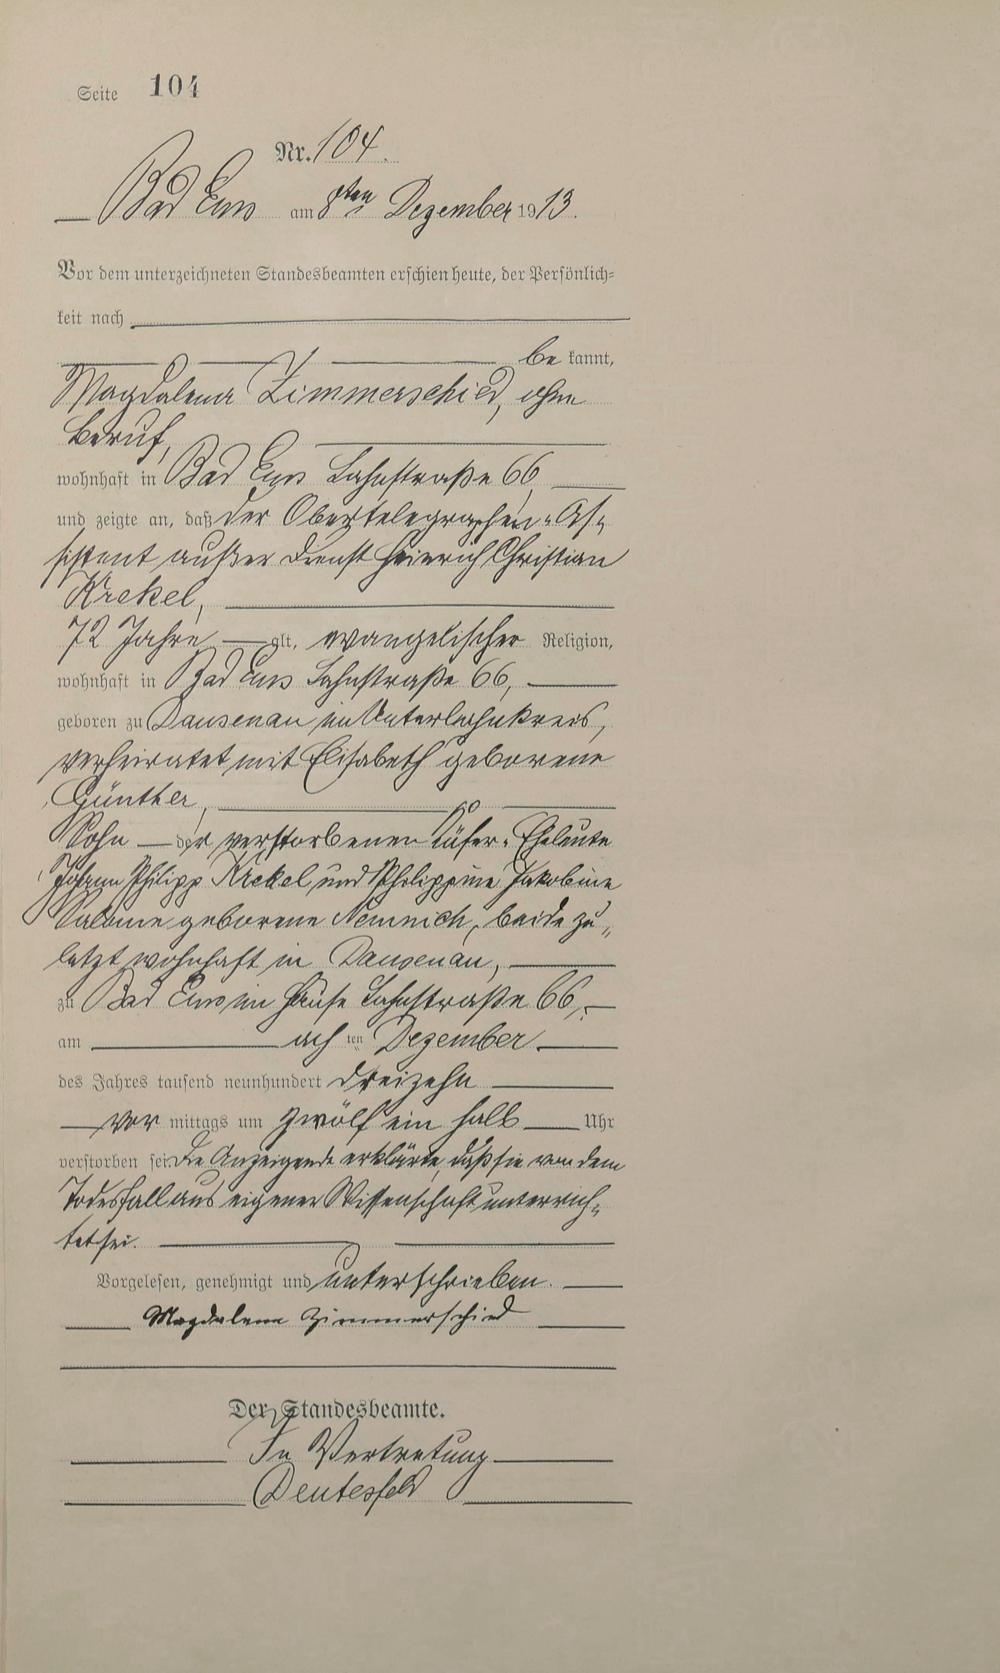 Seite 104
Nr. 104.
Bad Ems am 8ten Dezember 1913.
Vor dem unterzeichneten Standesbeamten erschien heute, der Persönlich-
keit nach
be kannt,
Magdalena Zimmerschied, ohne
Beruf,
wohnhaft in Bad Ems Lahnstraße 66
und zeigte an, daß der Obertelegraphen-As-
sistent außer Dienst Heinrich Christian
Krekel,
72 Jahre alt, evangelischer Religion,
wohnhaft in Bad Ems Lahnstraße 66,
geboren zu Dausenau im Unterlahnkreis,
verheiratet mit Elisabeth geborene
Günther,
Sohn der verstorbenen Küfer-Eheleute
Johann Philipp Krekel und Philippine Jakobine
Salome geborene Nemnich, beide zu-
letzt wohnhaft in Dausenau,
zu Bad Ems im Hause Lahnstraße 66,
am achten Dezember
des Jahres tausend neunhundert dreizehn
vor mittags um zwölf ein halb Uhr
verstorben sei. Die Anzeigende erklärte, daß sie von dem
Todesfall aus eigener Wissenschaft unterrich-
tet sei.
Vorgelesen, genehmigt und unterschrieben.
Magdalena Zimmerschied
Der Standesbeamte.
In Vertretung
Deutesfeld